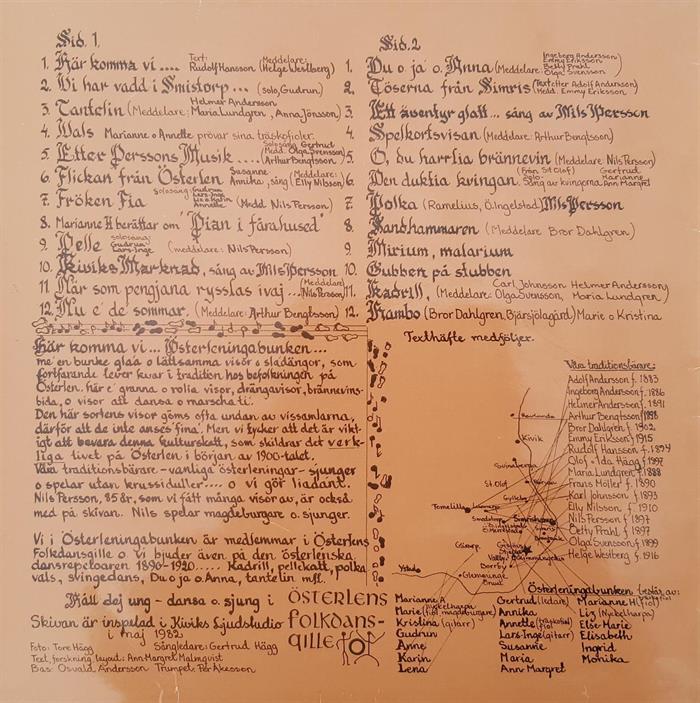 Sid. 1.
1. Här komma vi .... Text: Rudolf Hansson (Meddelare: Helge Westberg)
2. Vi har vadd i Smistorp... (solo, Gudrun)
3. Tantelin (Meddelare: Helmer Andersson Maria Lundgren, Anna Jönsson)
4. Vals Marianne o Annette prövar sina träskofioler.
5. Etter Perssons Musik.... Solosång Gertrud (Medd. Olga Svensson Arthur Bengtsson)
6. Flickan från Österlen Susanne Annika, sång (Meddelare: Elly Nilsson)
7. Fröken Fia Solosång: Gudrun Lars-Inge Annette (Medd. Nils Persson)
8. Marianne H berättar om "Pian i fårahused"
9. Pelle solosång: Gudrun Lars-Inge (meddelare: Nils Persson)
10. Kiviks Marknad, sång av Nils Persson
11. När som pengjana rysslas ivaj ... (Meddelare: Nils Persson)
12. Nu é de sommar. (Meddelare: Arthur Bengtsson)
Sid. 2
1. Du o ja o Anna (Meddelare: Ingeborg Andersson Emmy Eriksson Betty Prahl Olga Svensson)
2. Töserna från Simris (Text efter Adolf Andersson Medd. Emmy Eriksson)
3. Ett äventyr glatt... sång av Nils Persson
4. Spelkortsvisan (Meddelare: Arthur Bengtsson)
5. O, du harrlia brännevin (Meddelare Nils Persson)
6. Den duktia kvingan. (från St Olof) Solo- Gertrud Marianne Sång av kvingorna Ann Margret
7. Polka (Ramelius, Ö. Ingelstad) Nils Persson
8. Sandhammaren (Meddelare Bror Dahlgren)
9. Mirium, malarium
10. Gubben på stubben
11. Kadrill, (Meddelare: Carl Johnsson Helmer Andersson Olga Svensson, Maria Lundgren)
12. Rambo (Bror Dahlgren, Bjärsjölagård) Marie o Kristina
Här komma vi... Österleningabunken...
me en bunke glaa o lättsamma visor o sladängor, som
fortfarande lever kvar i tradition hos befolkningen på
Österlen. här e' granna o rolia visor, drängavisor, brännevins-
bida, o visor att dansa o marscha ti.
Den här sortens visor göms ofta undan av vissamlarna,
därför att de inte anses fina. Men vi tycker att det är vikt-
igt att bevara denna kulturskatt, som skildrar det verk-
liga livet på Österlen i början av 1900-talet.
Våra traditionsbärare - vanliga österleningar - sjunger
o spelar utan krussiduller.... o vi gör liadant.
Nils Persson, 85 år, som vi fått många visor av, är också
med på skivan. Nils spelar magdeburgare o. sjunger.
Vi i Österleningabunken är medlemmar i Österlens
Folkdansgille o vi bjuder även på den österlenska
dansrepetoaren 1890-1920..... Kadrill, pellekatt, polka
vals, svingedans, Du o ja o Anna, tantelin mfl.
Håll dej ung - dansa o. sjung i
ÖSTERLENS
FOLKDANS-
GILLE
Skivan är inspelad i Kiviks Ljudstudio
i maj 1982
Foto: Tore Hägg Sångledare: Gertrud Hägg
Text, forskning layout: Ann-Margret Malmqvist
Bas: Osvald Andersson Trumpet: Per Åkesson
Texthäfte medföljer.
Våra traditionsbärare:
Adolf Andersson f. 1883
Ingeborg Andersson f. 1886
Helmer Andersson f. 1891
Arthur Bengtsson f. 1898
Bror Dahlgren f. 1902
Emmy Eriksson f. 1915
Rudolf Hansson f. 1894
Olof o Ida Hägg f. 1897
Maria Lundgren f. 1888
Frans Möller f. 1890
Karl Johnsson f. 1893
Elly Nilsson f. 1910
Nils Persson f. 1897
Betty Prahl f. 1897
Olga Svensson f. 1899
Helge Westberg f. 1916
Ravlunda
Kivik
St Olof
Gyllebo
Tomelilla
Simrishamn
Borrby
Glemminge
Ystad
Österleningabunken består av:
Marianne A
Marie (nyckelharpa fiol, magdeburgare)
Kristina (gitarr)
Gudrun
Anne
Karin
Lena
Gertrud (ledare)
Annika
Annette (träskofiol fiol)
Lars-Inge (gitarr)
Susanne
Maria
Ann Margret
Marianne H (träskofiol fiol)
Liz (Nyckelharpa)
Else Marie
Elisabeth
Ingrid
Monika